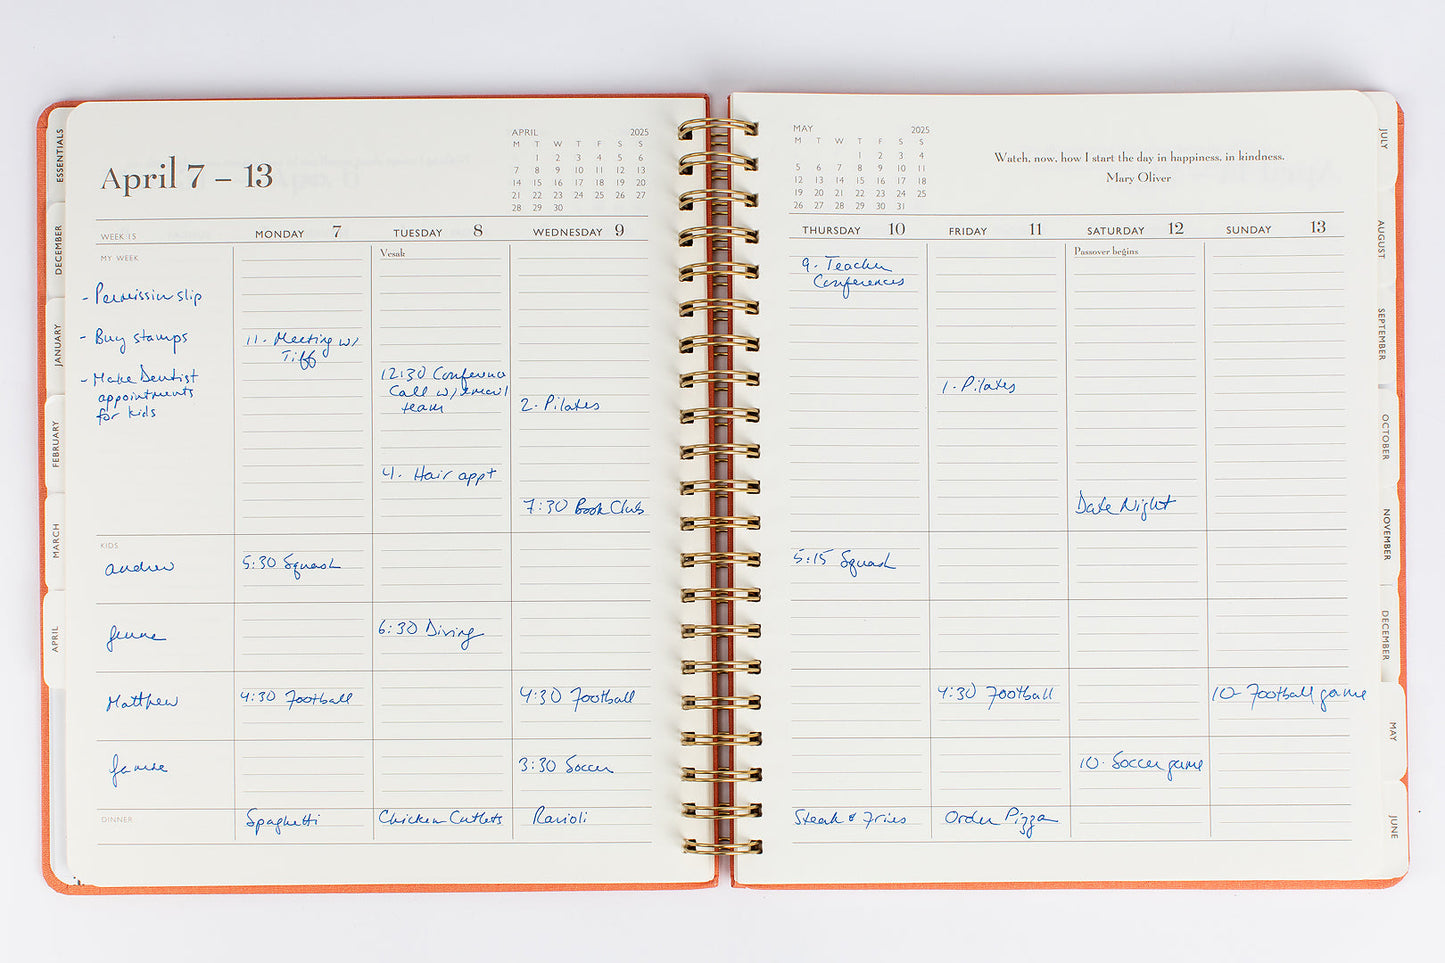 ESSENTIALS
DECEMBER
JANUARY
FEBRUARY
MARCH
APRIL
April 7 – 13
APRIL 2025
M T W T F S S
1 2 3 4 5 6
7 8 9 10 11 12 13
14 15 16 17 18 19 20
21 22 23 24 25 26 27
28 29 30
WEEK 15
MONDAY 7
TUESDAY 8
WEDNESDAY 9
MY WEEK
- Permission slip
- Buy stamps
- Make Dentist
appointments
for kids
11. Meeting w/
Tiff
Vesak
12:30 Conference
Call w/ email
team
4. Hair appt
2. Pilates
7:30 Book Club
KIDS
Andrew
5:30 Squash
6:30 Diving
Matthew
4:30 Football
4:30 Football
3:30 Soccer
DINNER
Spaghetti
Chicken Cutlets
Ravioli
MAY 2025
M T W T F S S
1 2 3 4
5 6 7 8 9 10 11
12 13 14 15 16 17 18
19 20 21 22 23 24 25
26 27 28 29 30 31
Watch, now, how I start the day in happiness, in kindness.
Mary Oliver
THURSDAY 10
FRIDAY 11
SATURDAY 12
SUNDAY 13
9. Teacher
Conferences
1. Pilates
Passover begins
Date Night
5:15 Squash
4:30 Football
10- Football game
10. Soccer game
Steak & Fries
Order Pizza
JULY
AUGUST
SEPTEMBER
OCTOBER
NOVEMBER
DECEMBER
MAY
JUNE